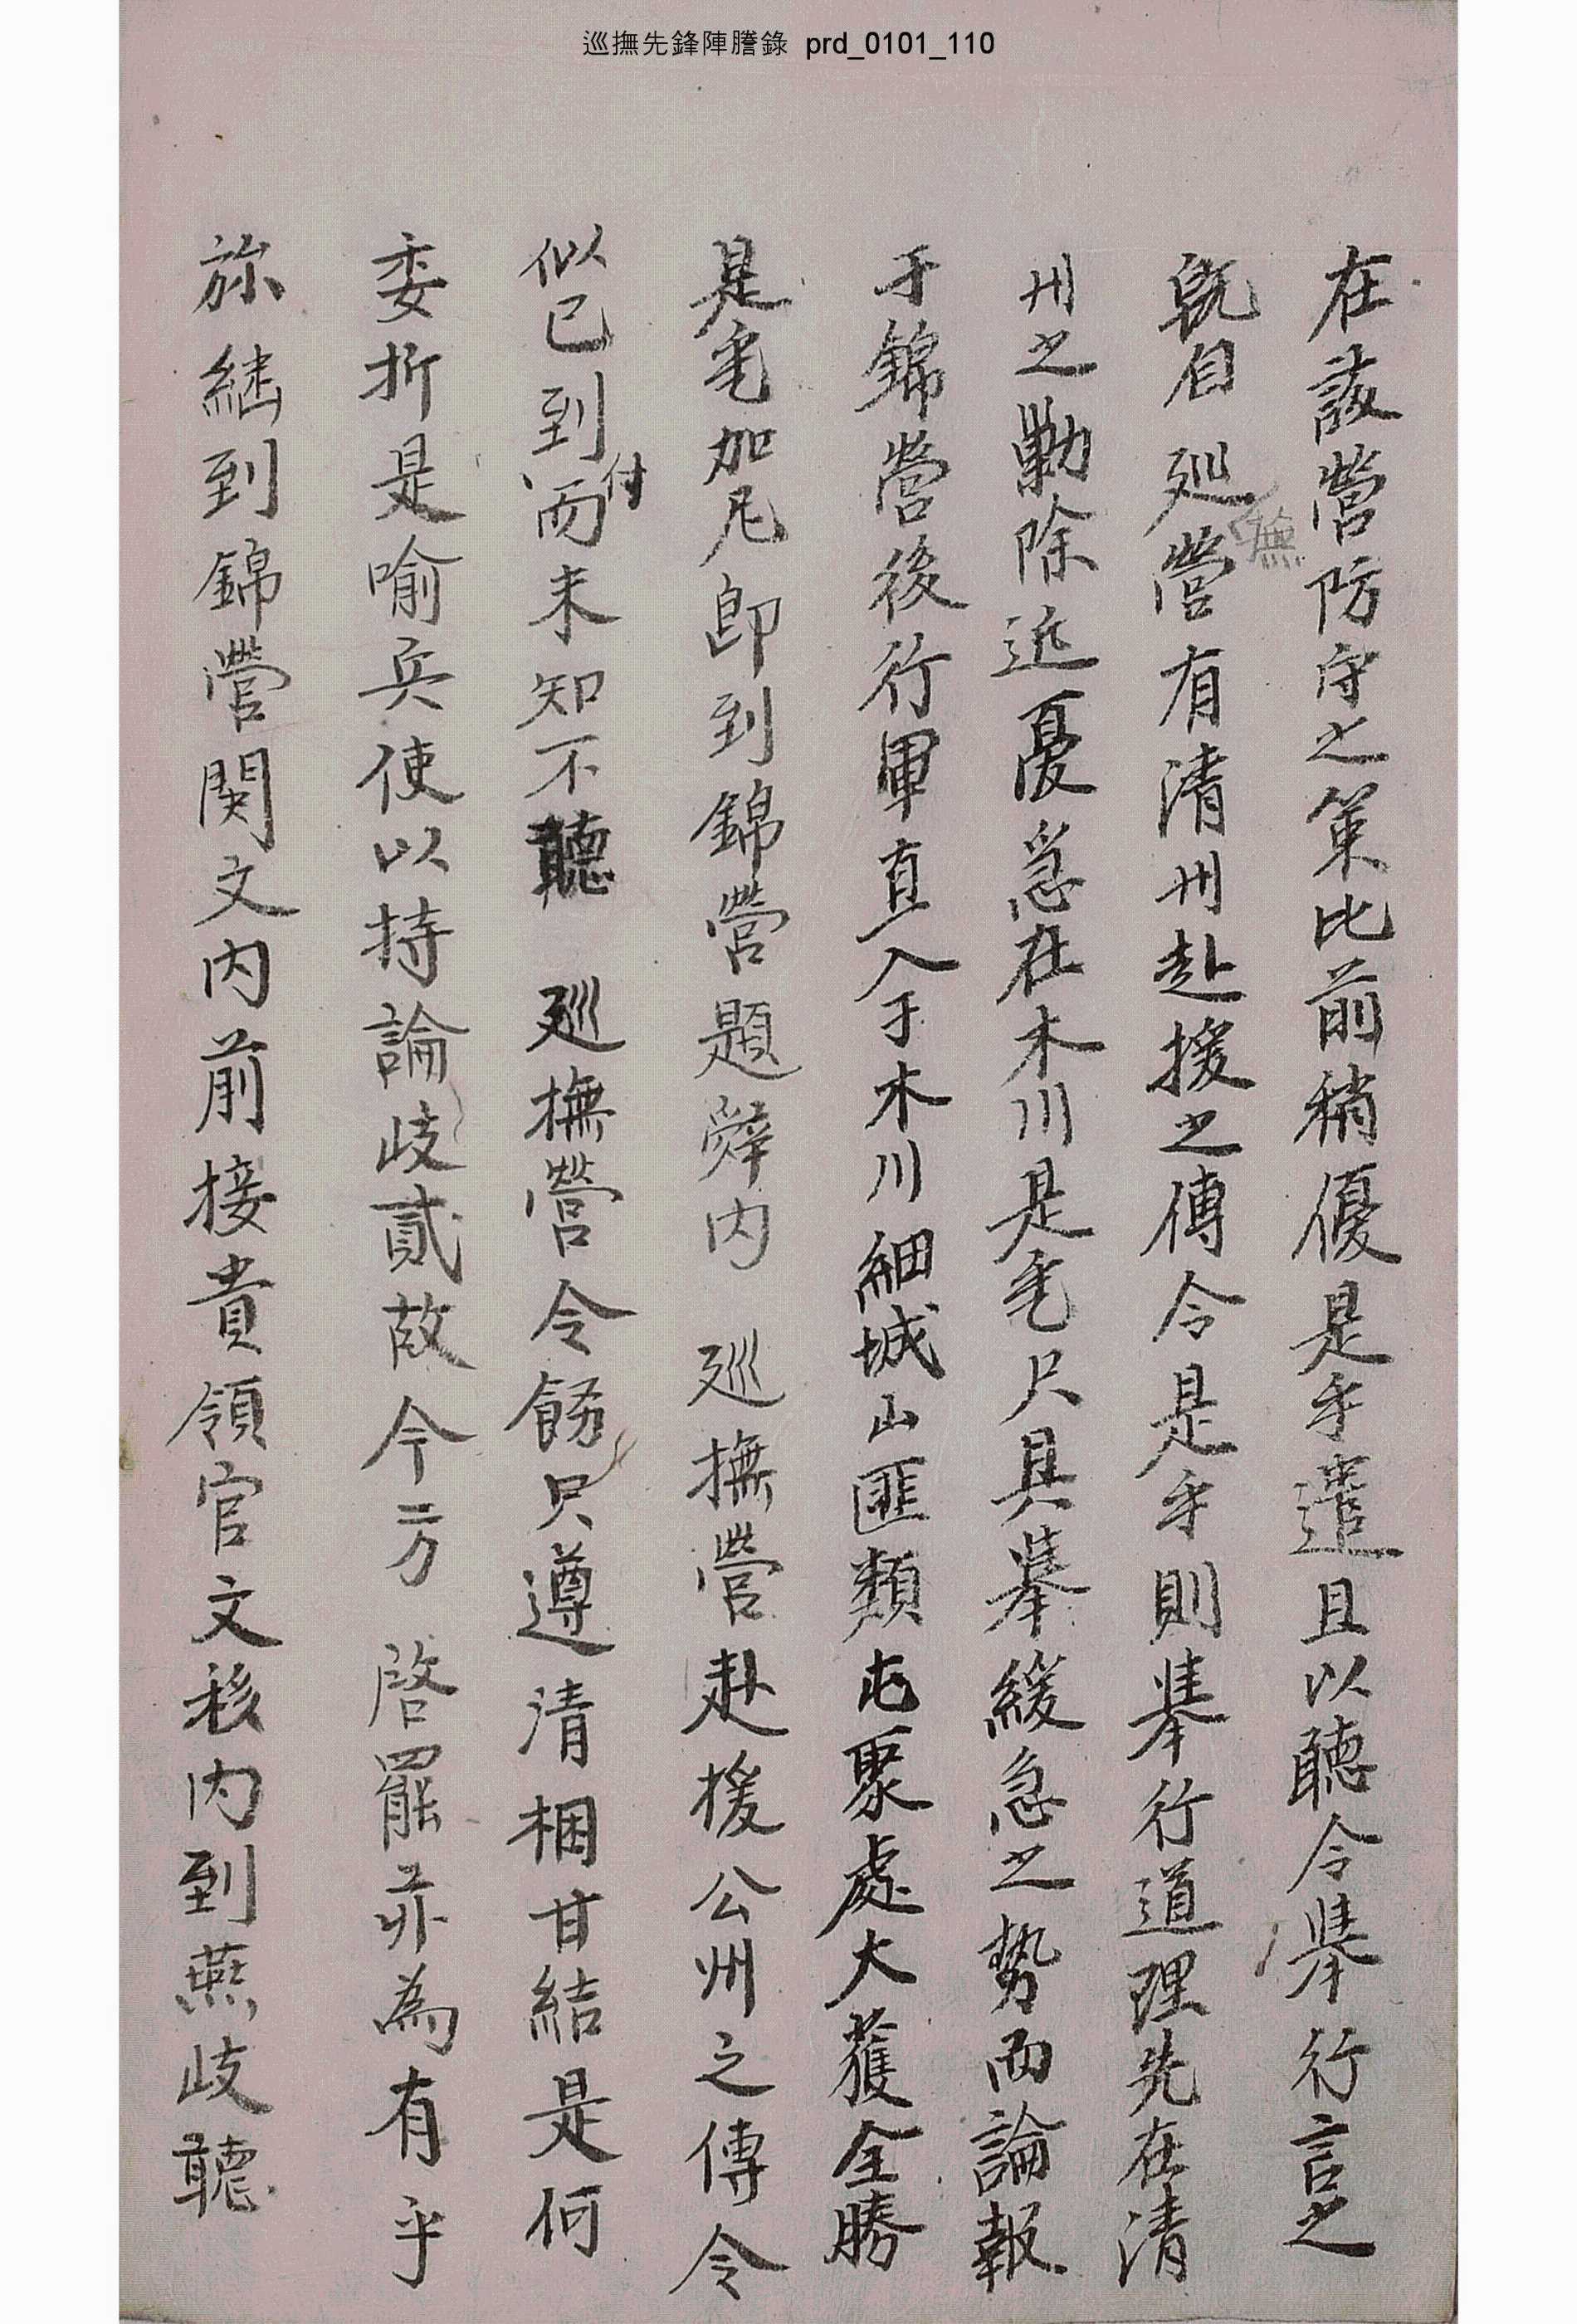 巡撫先鋒陣謄錄 prd_0101_110
在該營防守之策比前稍優是乎遣且以聽令擧行言之
旣自 巡撫營有清州赴援之傳令是乎則擧行道理先在清
州之勦除近憂急在木川是乎尺具擧緩急之勢而論報
于錦營後行軍直入于木川細城山匪類屯聚處大獲全勝
是乎加尼卽到錦營題辭內 巡撫營赴援公州之傳令
似已到付而未知不聽 巡撫營令飭只遵清梱甘結是何
委折是喩兵使以持論歧貳故今方 啓罷亦爲有乎
旀継到錦營関文內前接貴領官文移內到燕歧聽